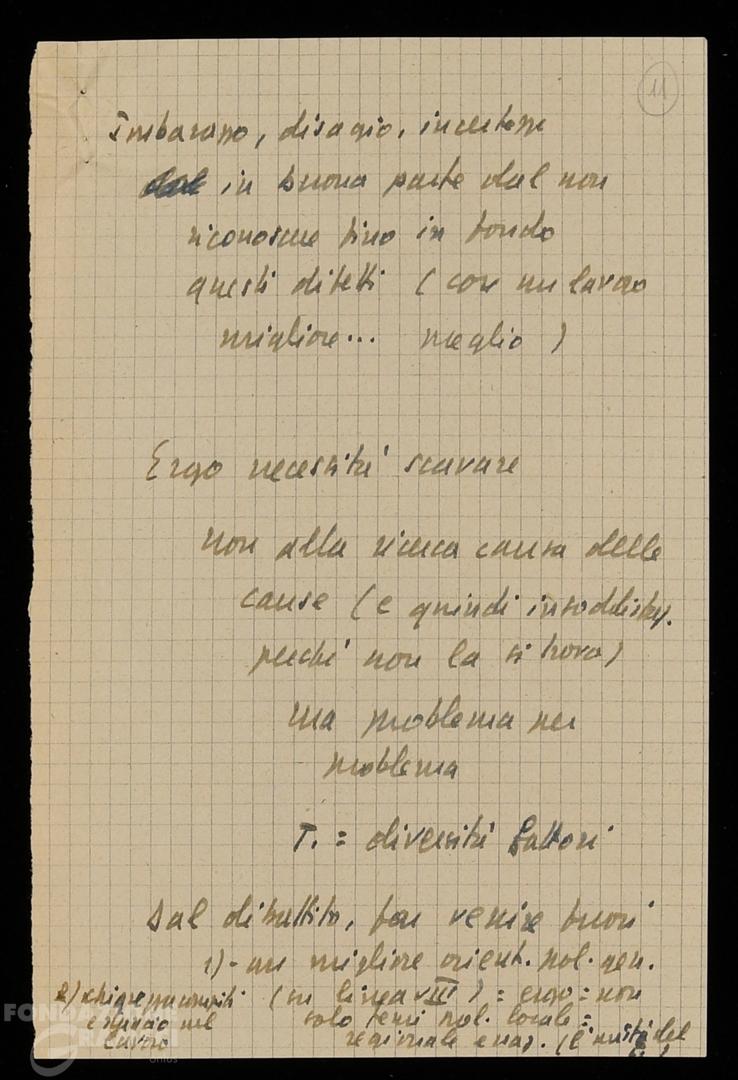 11
Imbarazzo, disagio, incertezze
in buona parte dal non
riconoscere fino in fondo
questi difetti (con un lavoro
migliore... meglio)
Ergo necessità scavare
non alla ricerca causa delle
cause (e quindi insoddisfaz.
perché non la si trova)
ma problema per
problema
T. = diversità fattori
Dal dibattito, far venire fuori
1) - un migliore orient. pol. gen.
2) (in linea VIII) = ergo = non
solo temi pol. locale =
lavoro regionale e naz. (è del
FONDAZIONE
GRAMSCI
Onlus